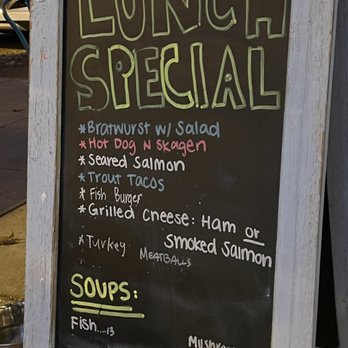 LUNCH
SPECIAL
*Bratwurst w/ Salad
*Hot Dog N Skagen
*Seared Salmon
*Trout Tacos
*Fish Burger
*Grilled Cheese: Ham or
Smoked Salmon
*Turkey
MEATBALLS
SOUPS:
Fish...13